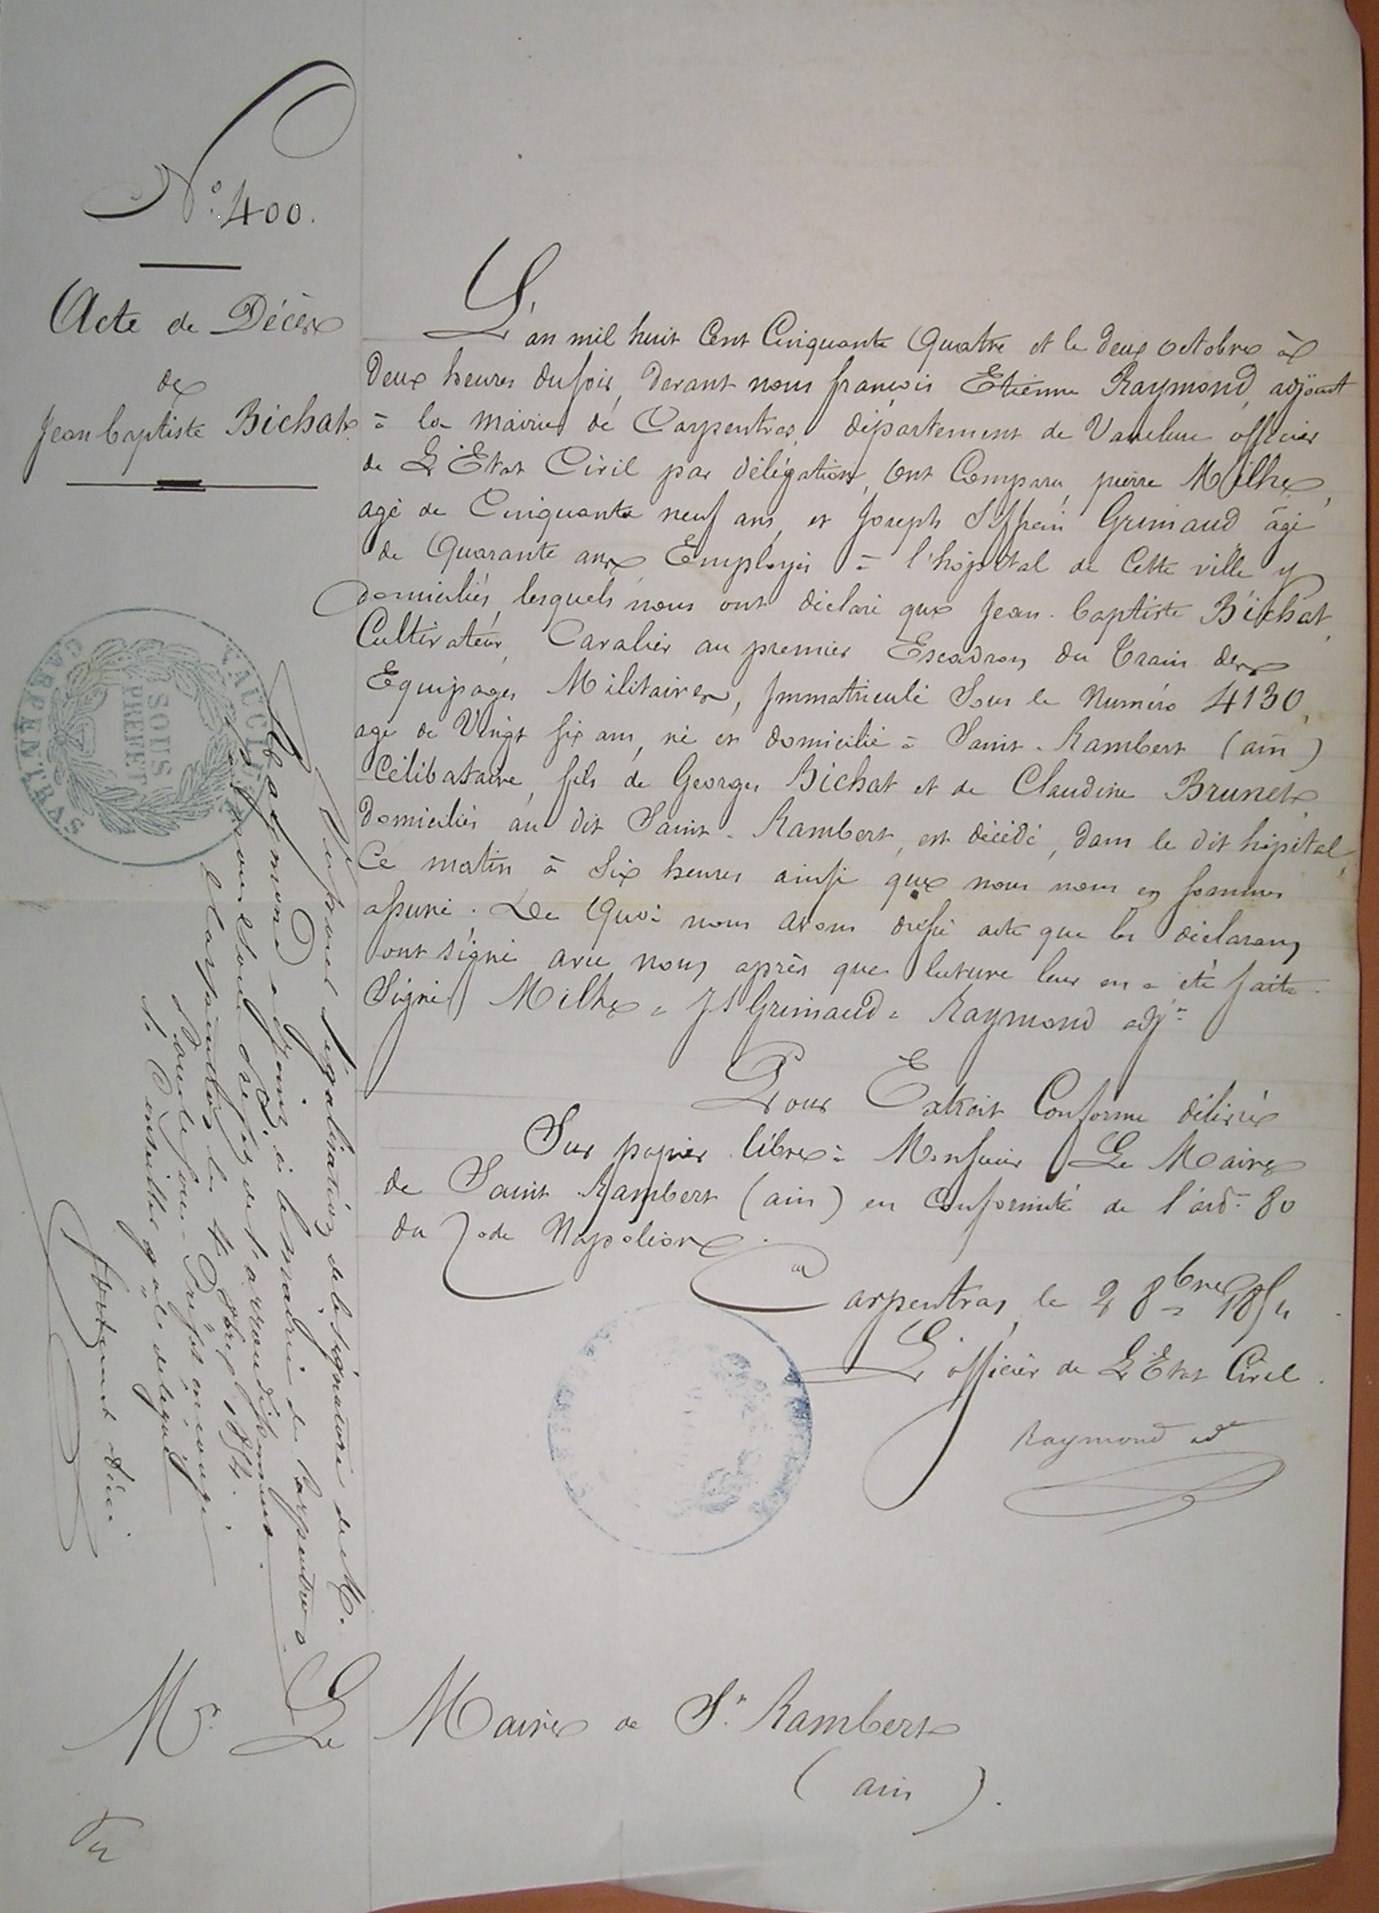 N° 400.
Acte de Décès
de
Jean baptiste Bichat
L'an mil huit Cent Cinquante Quatre et le deux octobre à
Deux heures du soir, devant nous françois Etienne Raymond, adjoint
à la mairie de Carpentras, département de Vaucluse officier
de L'Etat Civil par délégation, ont Comparu, pierre Milhe,
agé de Cinquante neuf ans, et Joseph Siffrein Grimaud âgé
de Quarante ans, Employés à l'hôpital de Cette ville y
domiciliés, lesquels nous ont déclaré que Jean-baptiste Bichat,
Cultivateur, Cavalier au premier Escadron du Train des
Equipages Militaires, Immatriculé Sous le Numéro 4130,
agé de Vingt six ans, né et domicilié à Saint-Rambert (ain)
Célibataire, fils de Georges Bichat et de Claudine Brunet
Domiciliés au dit Saint-Rambert, est décédé, dans le dit hôpital,
Ce matin à Six heures ainsi que nous nous en sommes
assuré. De Quoi nous avons dressé acte que les déclarans
ont signé avec nous après que lecture leur en a été faite.
Signés Milhe, Jh Grimaud, Raymond adjt
Pour Extrait Conforme délivré
Sur papier libre à Monsieur Le Maire
de Saint Rambert (ain) en Conformité de l'art. 80
du Code Napoléon.
Carpentras, le 2 8bre 1854
L'officier de L'Etat Civil.
Raymond adt
VAUCLUSE
SOUS
PREFET
CARPENTRAS
Vu pour légalisation de la signature de M.
Raymond adjoint à la mairie de Carpentras
par nous Sous-Préfet de l'arrondissement.
Carpentras le 4 8bre 1854.
Pour le Sous-Préfet en congé
Le Conseiller gal délégué
Mr Le Maire de St Rambert
(ain).
Vu